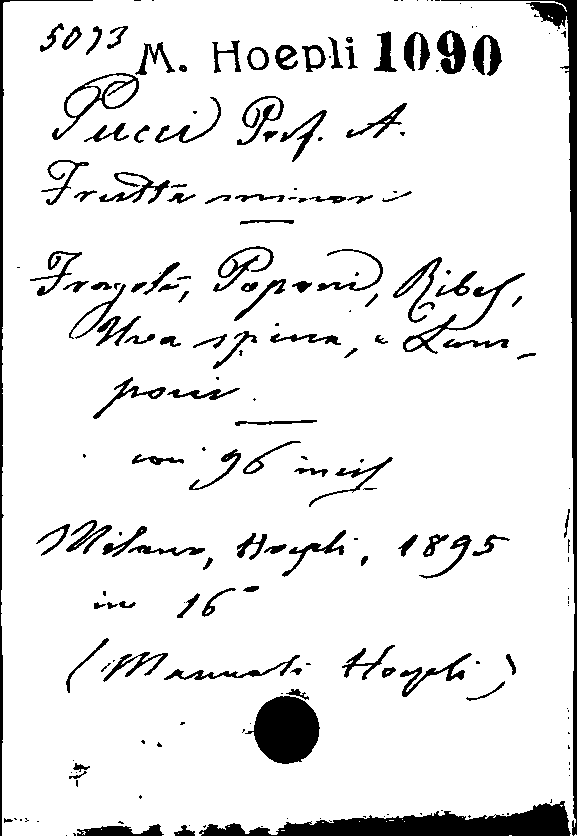 5073 M. Hoepli 1090
Pucci Prof. A.
Frutta minori
Fragole, Poponi, Ribes,
Uva spina, e Lam-
poni
con 96 incis
Milano, Hoepli, 1895
in 16°
(Manuali Hoepli)